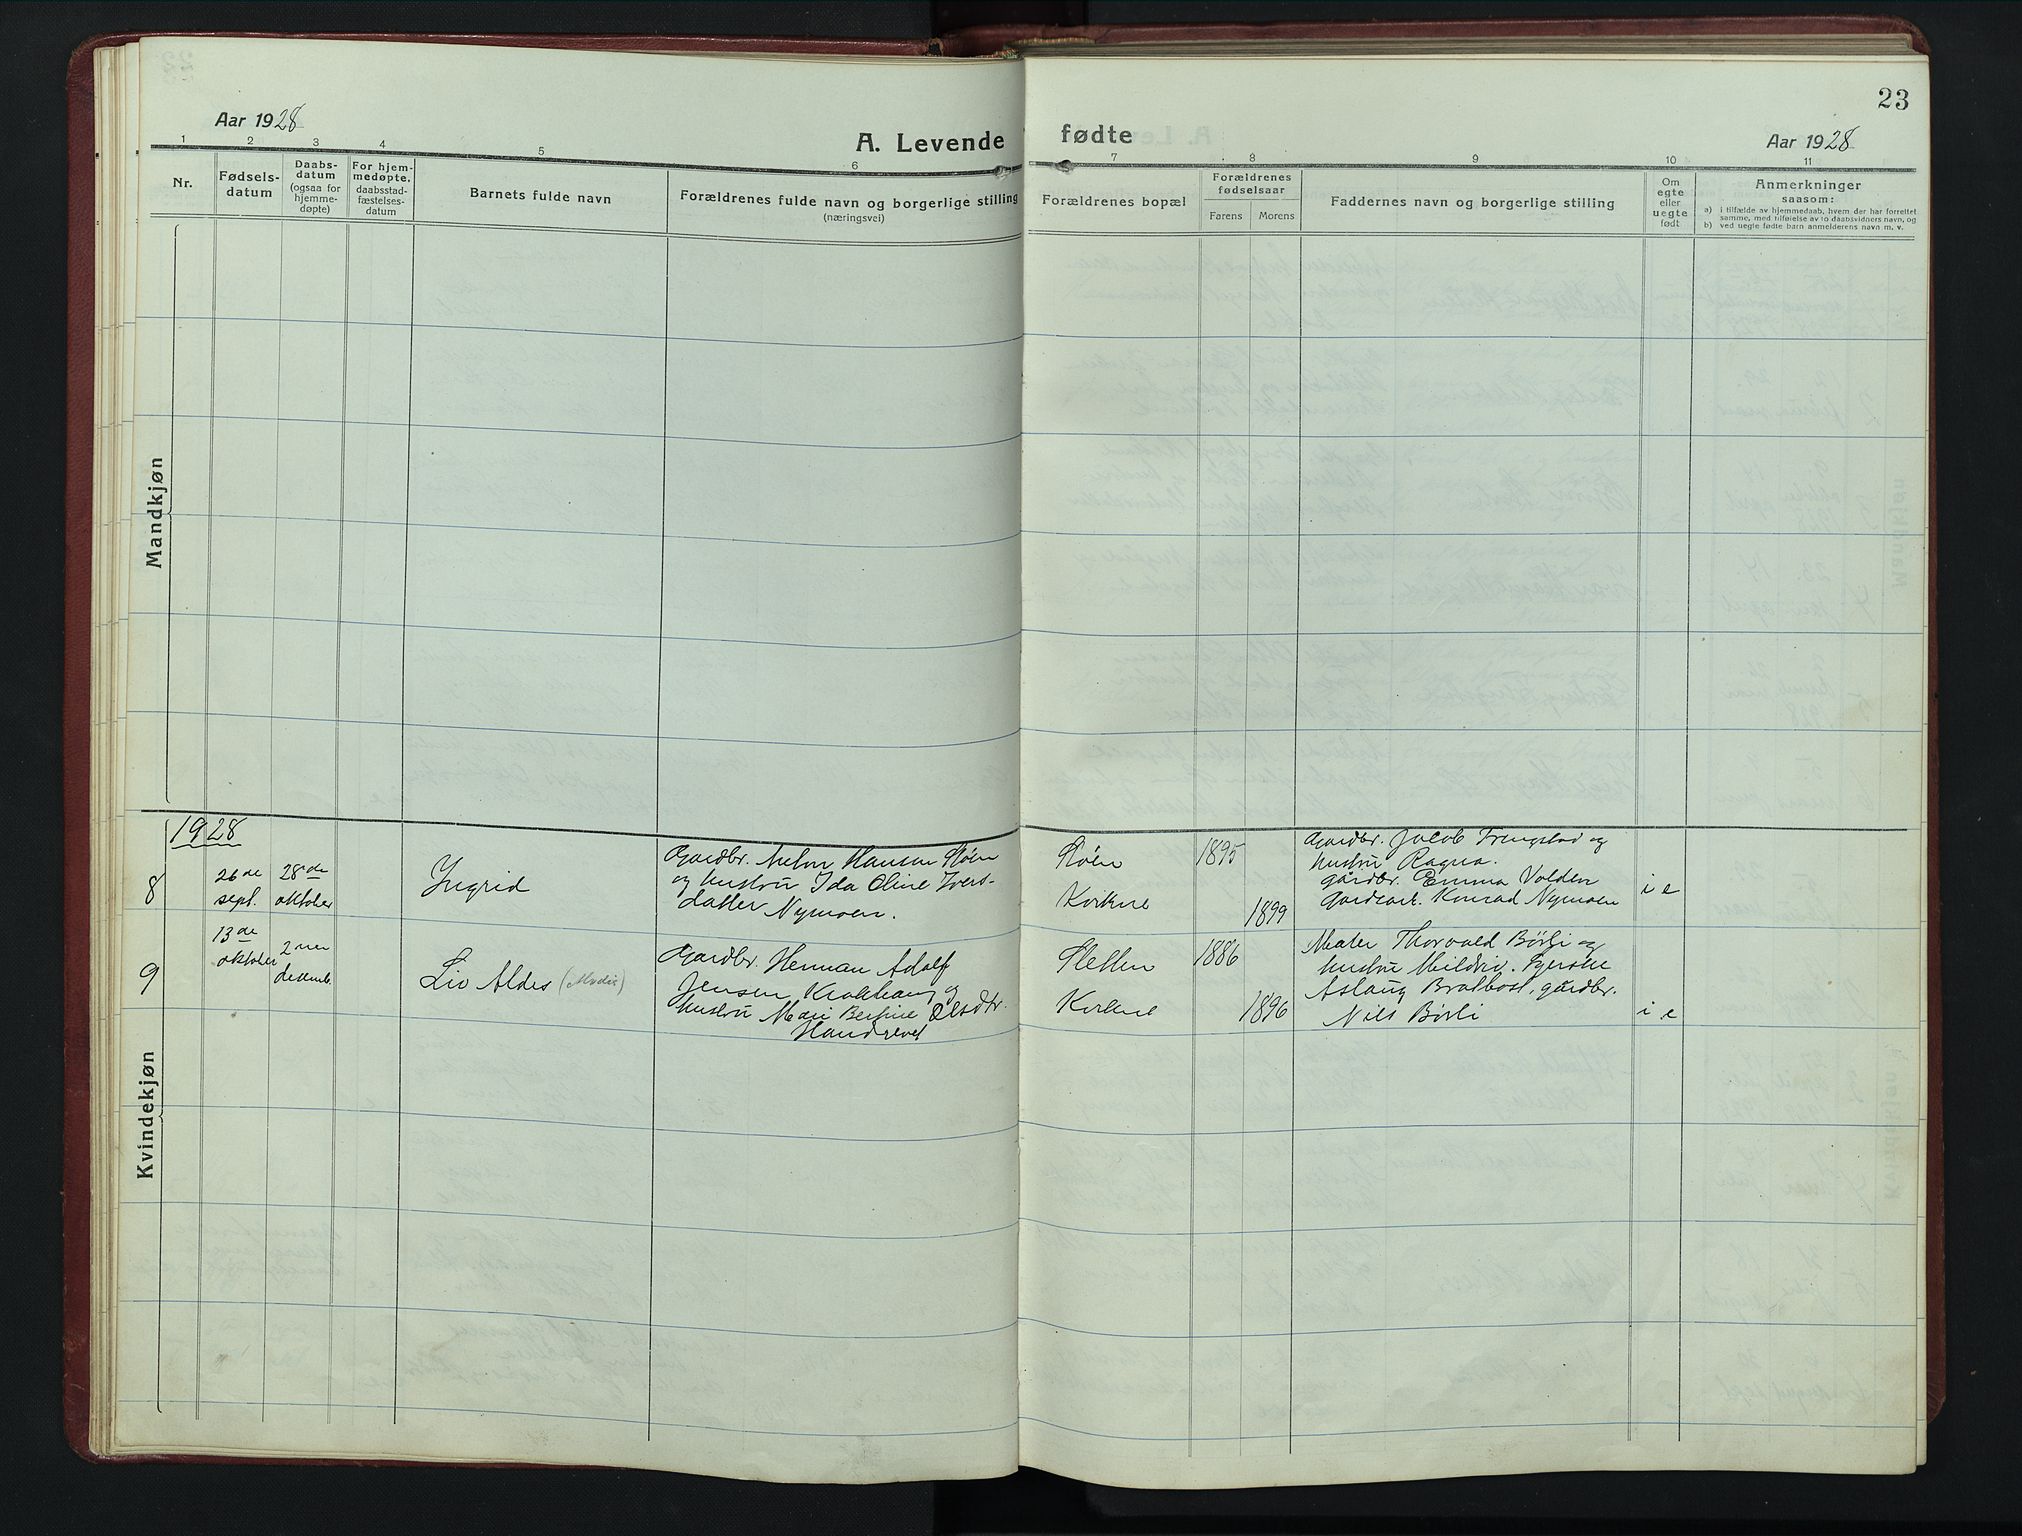 23
Aar 1928
A. Levende fødte
Aar 1928
1 2 3 4 5 6 7 8 9 10 11
Nr.
Fødsels-
datum
Daabs-
datum
(ogsaa for
hjemme-
døpte)
For hjem-
medøpte.
daabsstad-
fæstelses-
datum
Barnets fulde navn
Forældrenes fulde navn og borgerlige stilling
(næringsvei)
Forældrenes bopæl
Forældrenes
fødselsaar
Farens Morens
Faddernes navn og borgerlige stilling
Om
egte
eller
uegte
født
Anmerkninger
saasom:
a) i tilfælde av hjemmedaab, hvem der har forrettet
samme, med tilføielse av to daabsvidners navn, og
b) ved uegte fødte barn anmelderens navn m. v.
Mandkjøn
Kvindekjøn
1928
8
26de
sept.
28de
oktober
Ingrid
Gardbr. Anton Hansen Støen
og hustru Ida Oline Ivers-
datter Nymoen.
Støen
Kvikne
1895
1899
Gardbr. Jacob Frengstad og
hustru Ragna.
gårdbr. Emma Volden
Gardearb. Konrad Nymoen
i e
9
13de
oktober
2nen
desemb.
Liv Aldis
Gardbr. Herman Adolf
Jensen Krokhaug og
hustru Mari Bertine Olsdtr.
Sletten
Kvikne
1886
1896
Maler Thorvald Børli og
hustru
Aslaug Bratbost, gårdbr.
Nils Børli
i e